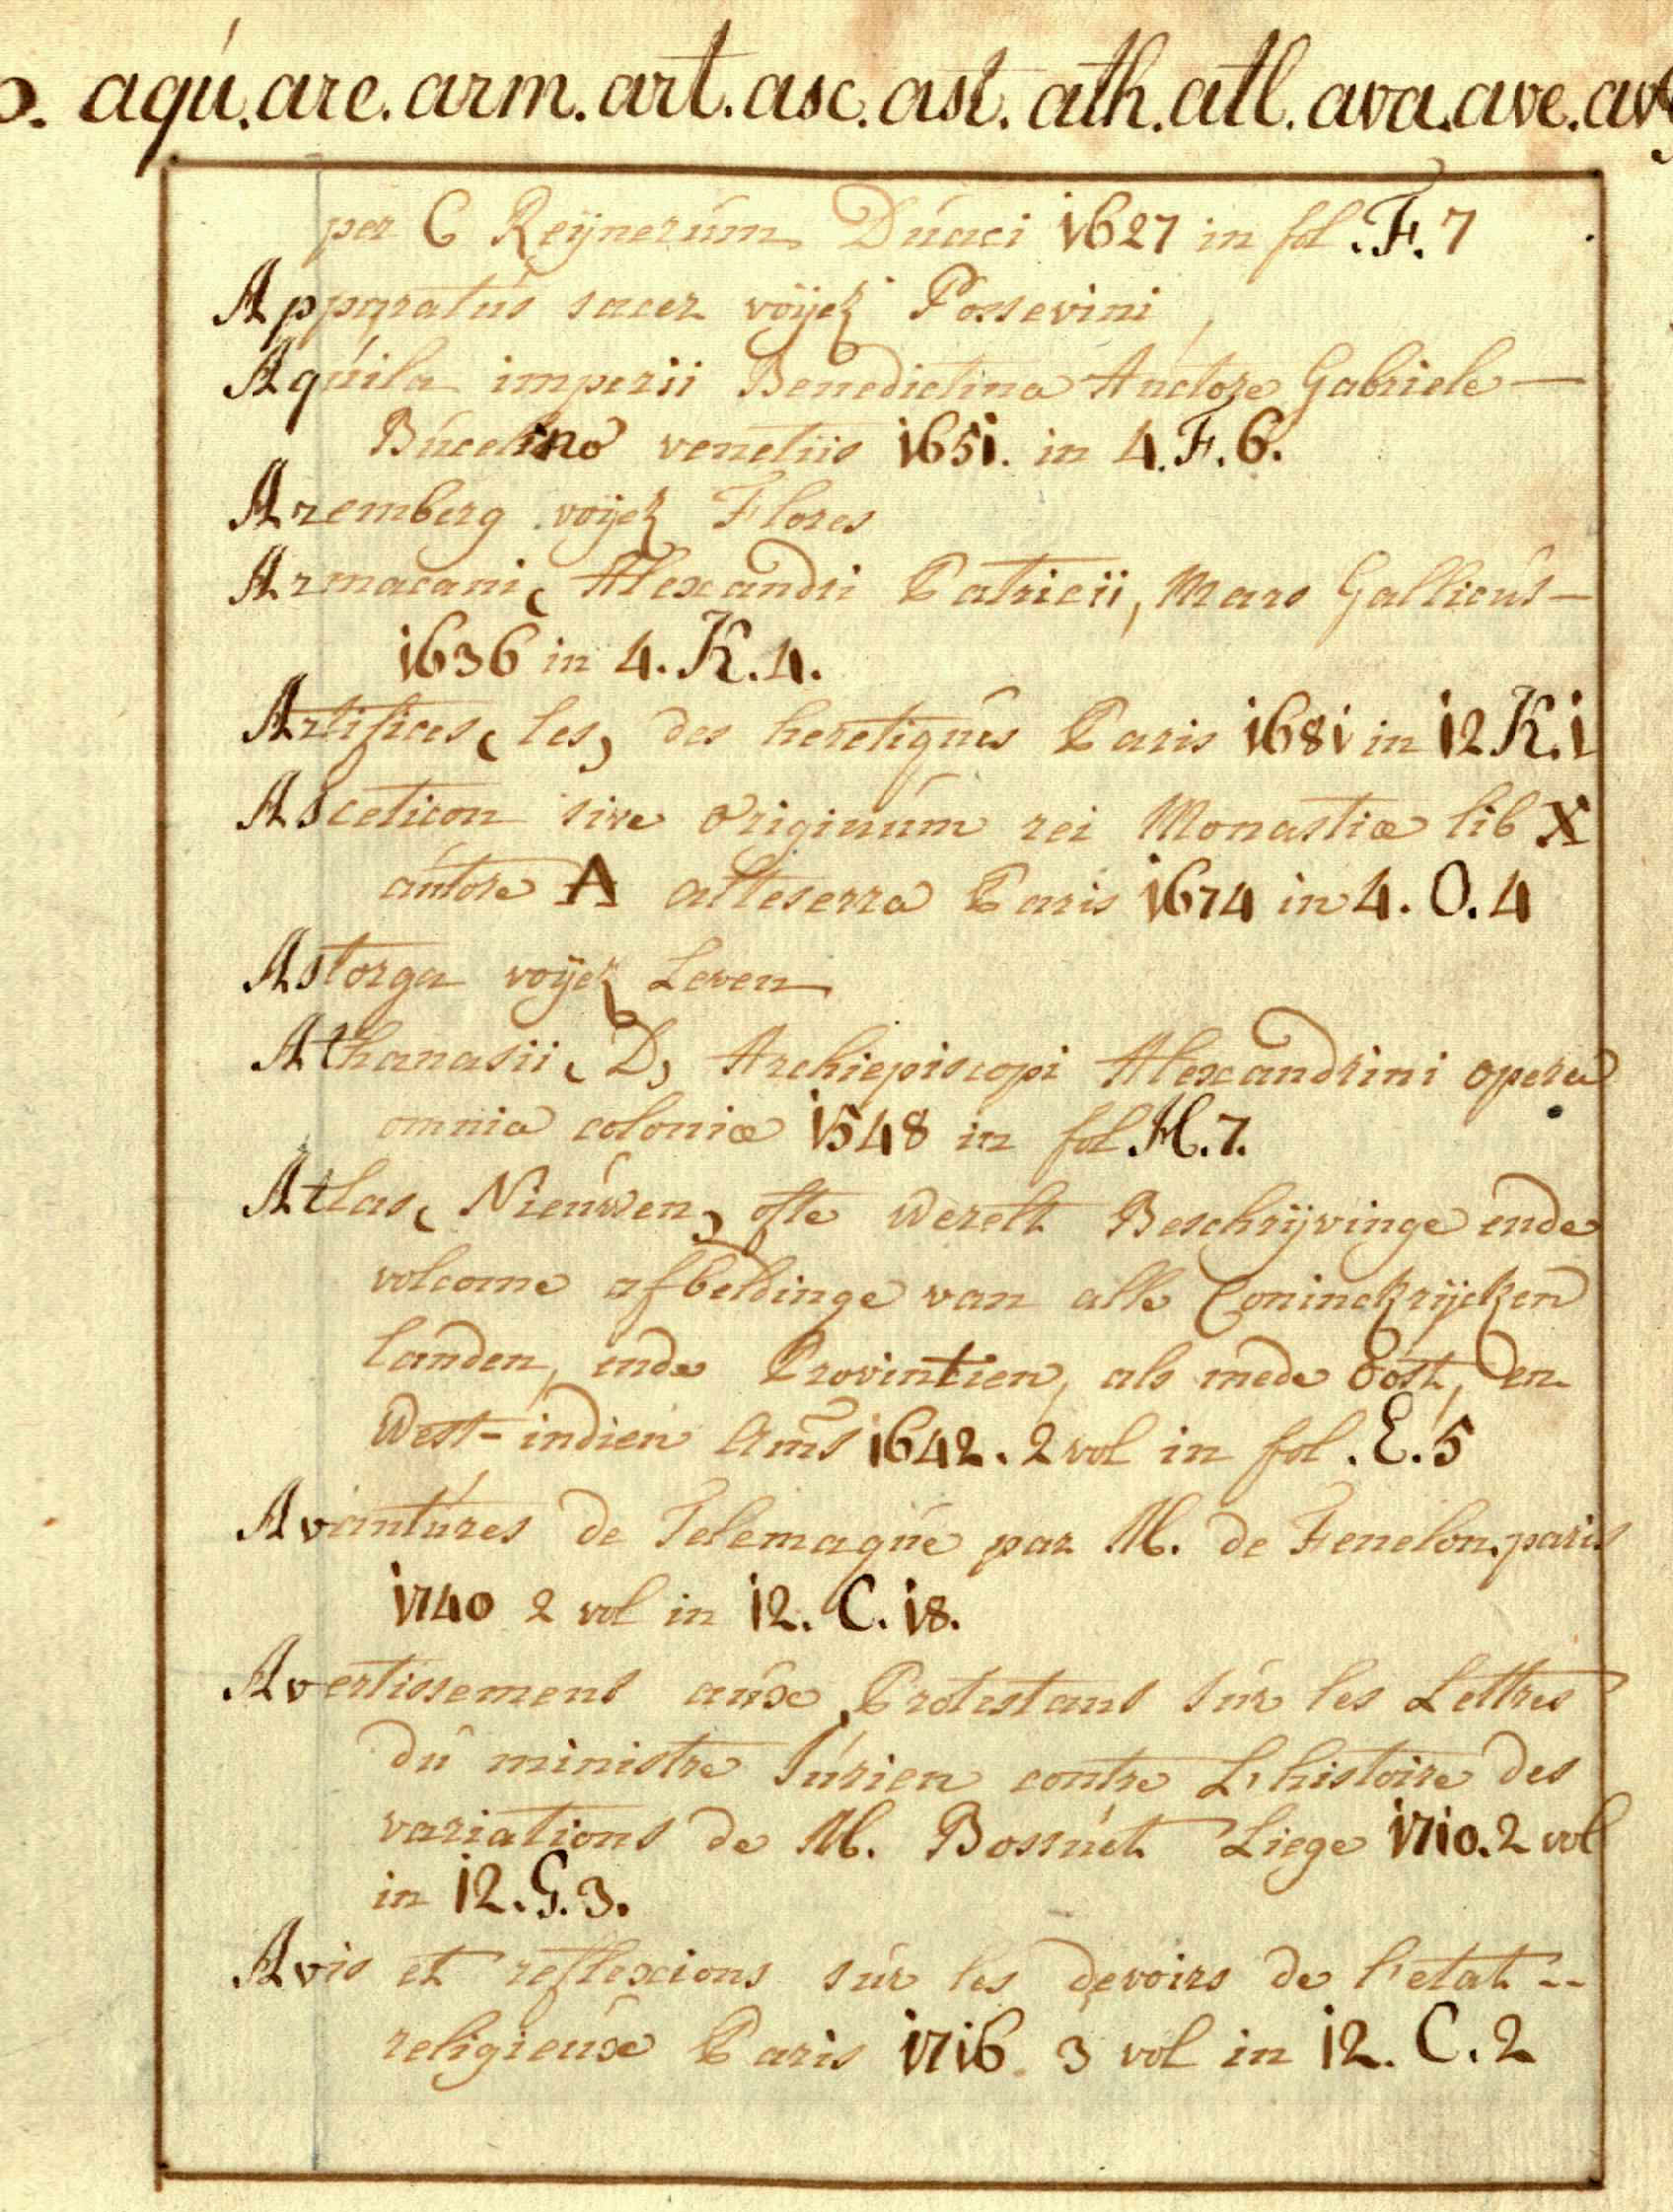 . aqú. are. arm. art. asc. ast. ath. atl. ava. ave. avg
per C Reÿnerúm Dúaci 1627 in fol. F. 7
Apparatús sacer voÿez Possevini
Aqúila imperii Benedictina Aúctore Gabriele —
Búcelino venetiis 1651. in 4. F. 6.
Aremberg voÿez Flores
Armacani, Alexandri Patricii, Mars Gallicús —
1636 in 4. K. 4.
Artifices, les, des heretiqúes Paris 1681 in 12 K. 1
Asceticon sive originúm rei Monastiæ lib X
aútore A alteserra Paris 1674 in 4. O. 4
Astorga voÿez Leven
Athanasii, D, Archiepiscopi Alexandrini opera
omnia coloniæ 1548 in fol. H. 7.
Atlas, Nieúwen, ofte werelt Beschrijvinge ende
volcome afbeldinge van alle Coninckrijcken
landen, ende Provintien, als mede oost, en
West-indien Ams 1642. 2 vol in fol. E. 5
Avantúres de Telemaqúe par M. de Fenelon. paris
1740 2 vol in 12. C. 18.
Avertissemens aúx Protestans súr les Lettres
dú ministre Júrien contre L'histoire des
variations de M. Bossúet Liege 1710. 2 vol
in 12. G. 3.
Avis et reflexions súr les devoirs de l'etat --
religieúx Paris 1716 3 vol in 12. C. 2